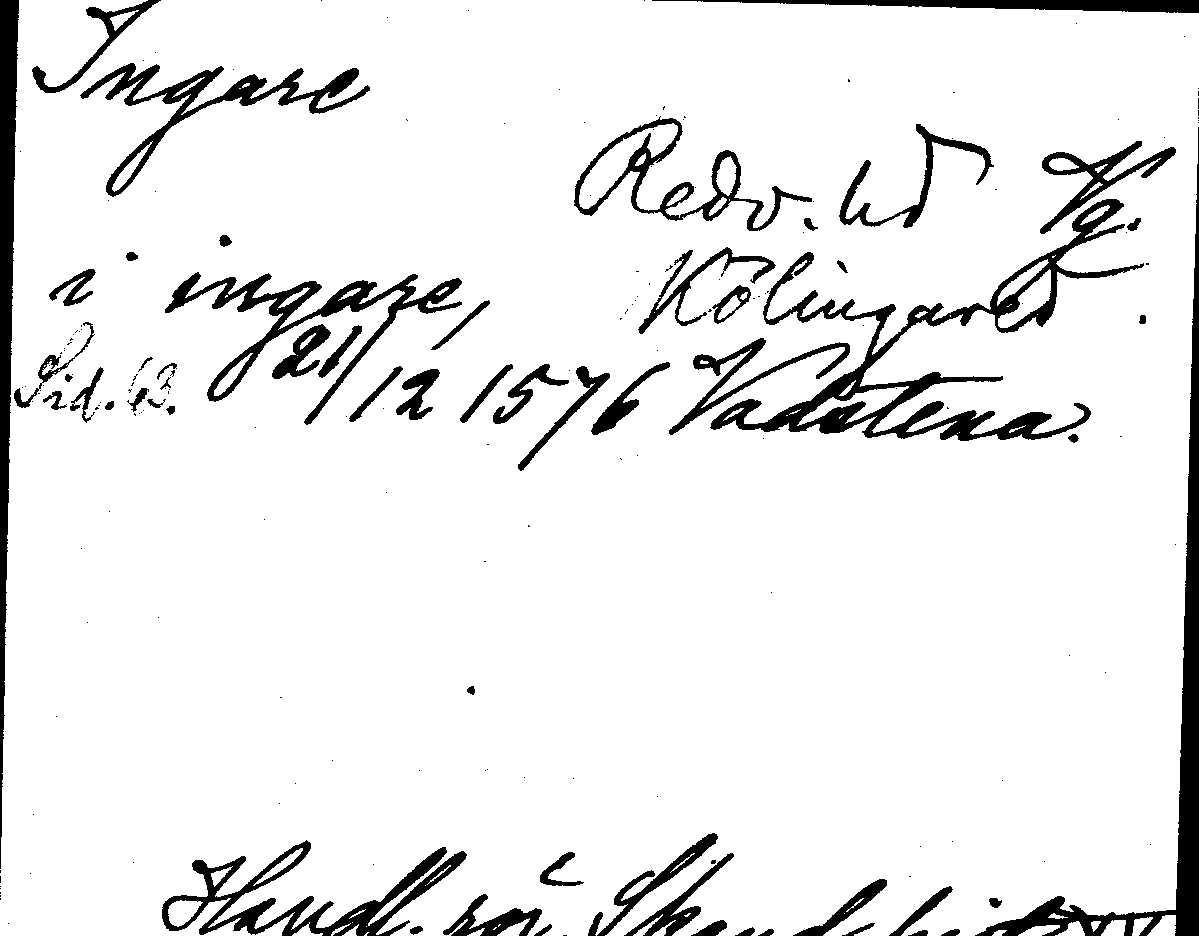 Ingare
Redv. hd Vg.
i ingare, Kölingared.
Sid. 63. 21/12 1576 Vadstena.
Handl. rör. Skand. hist. XX